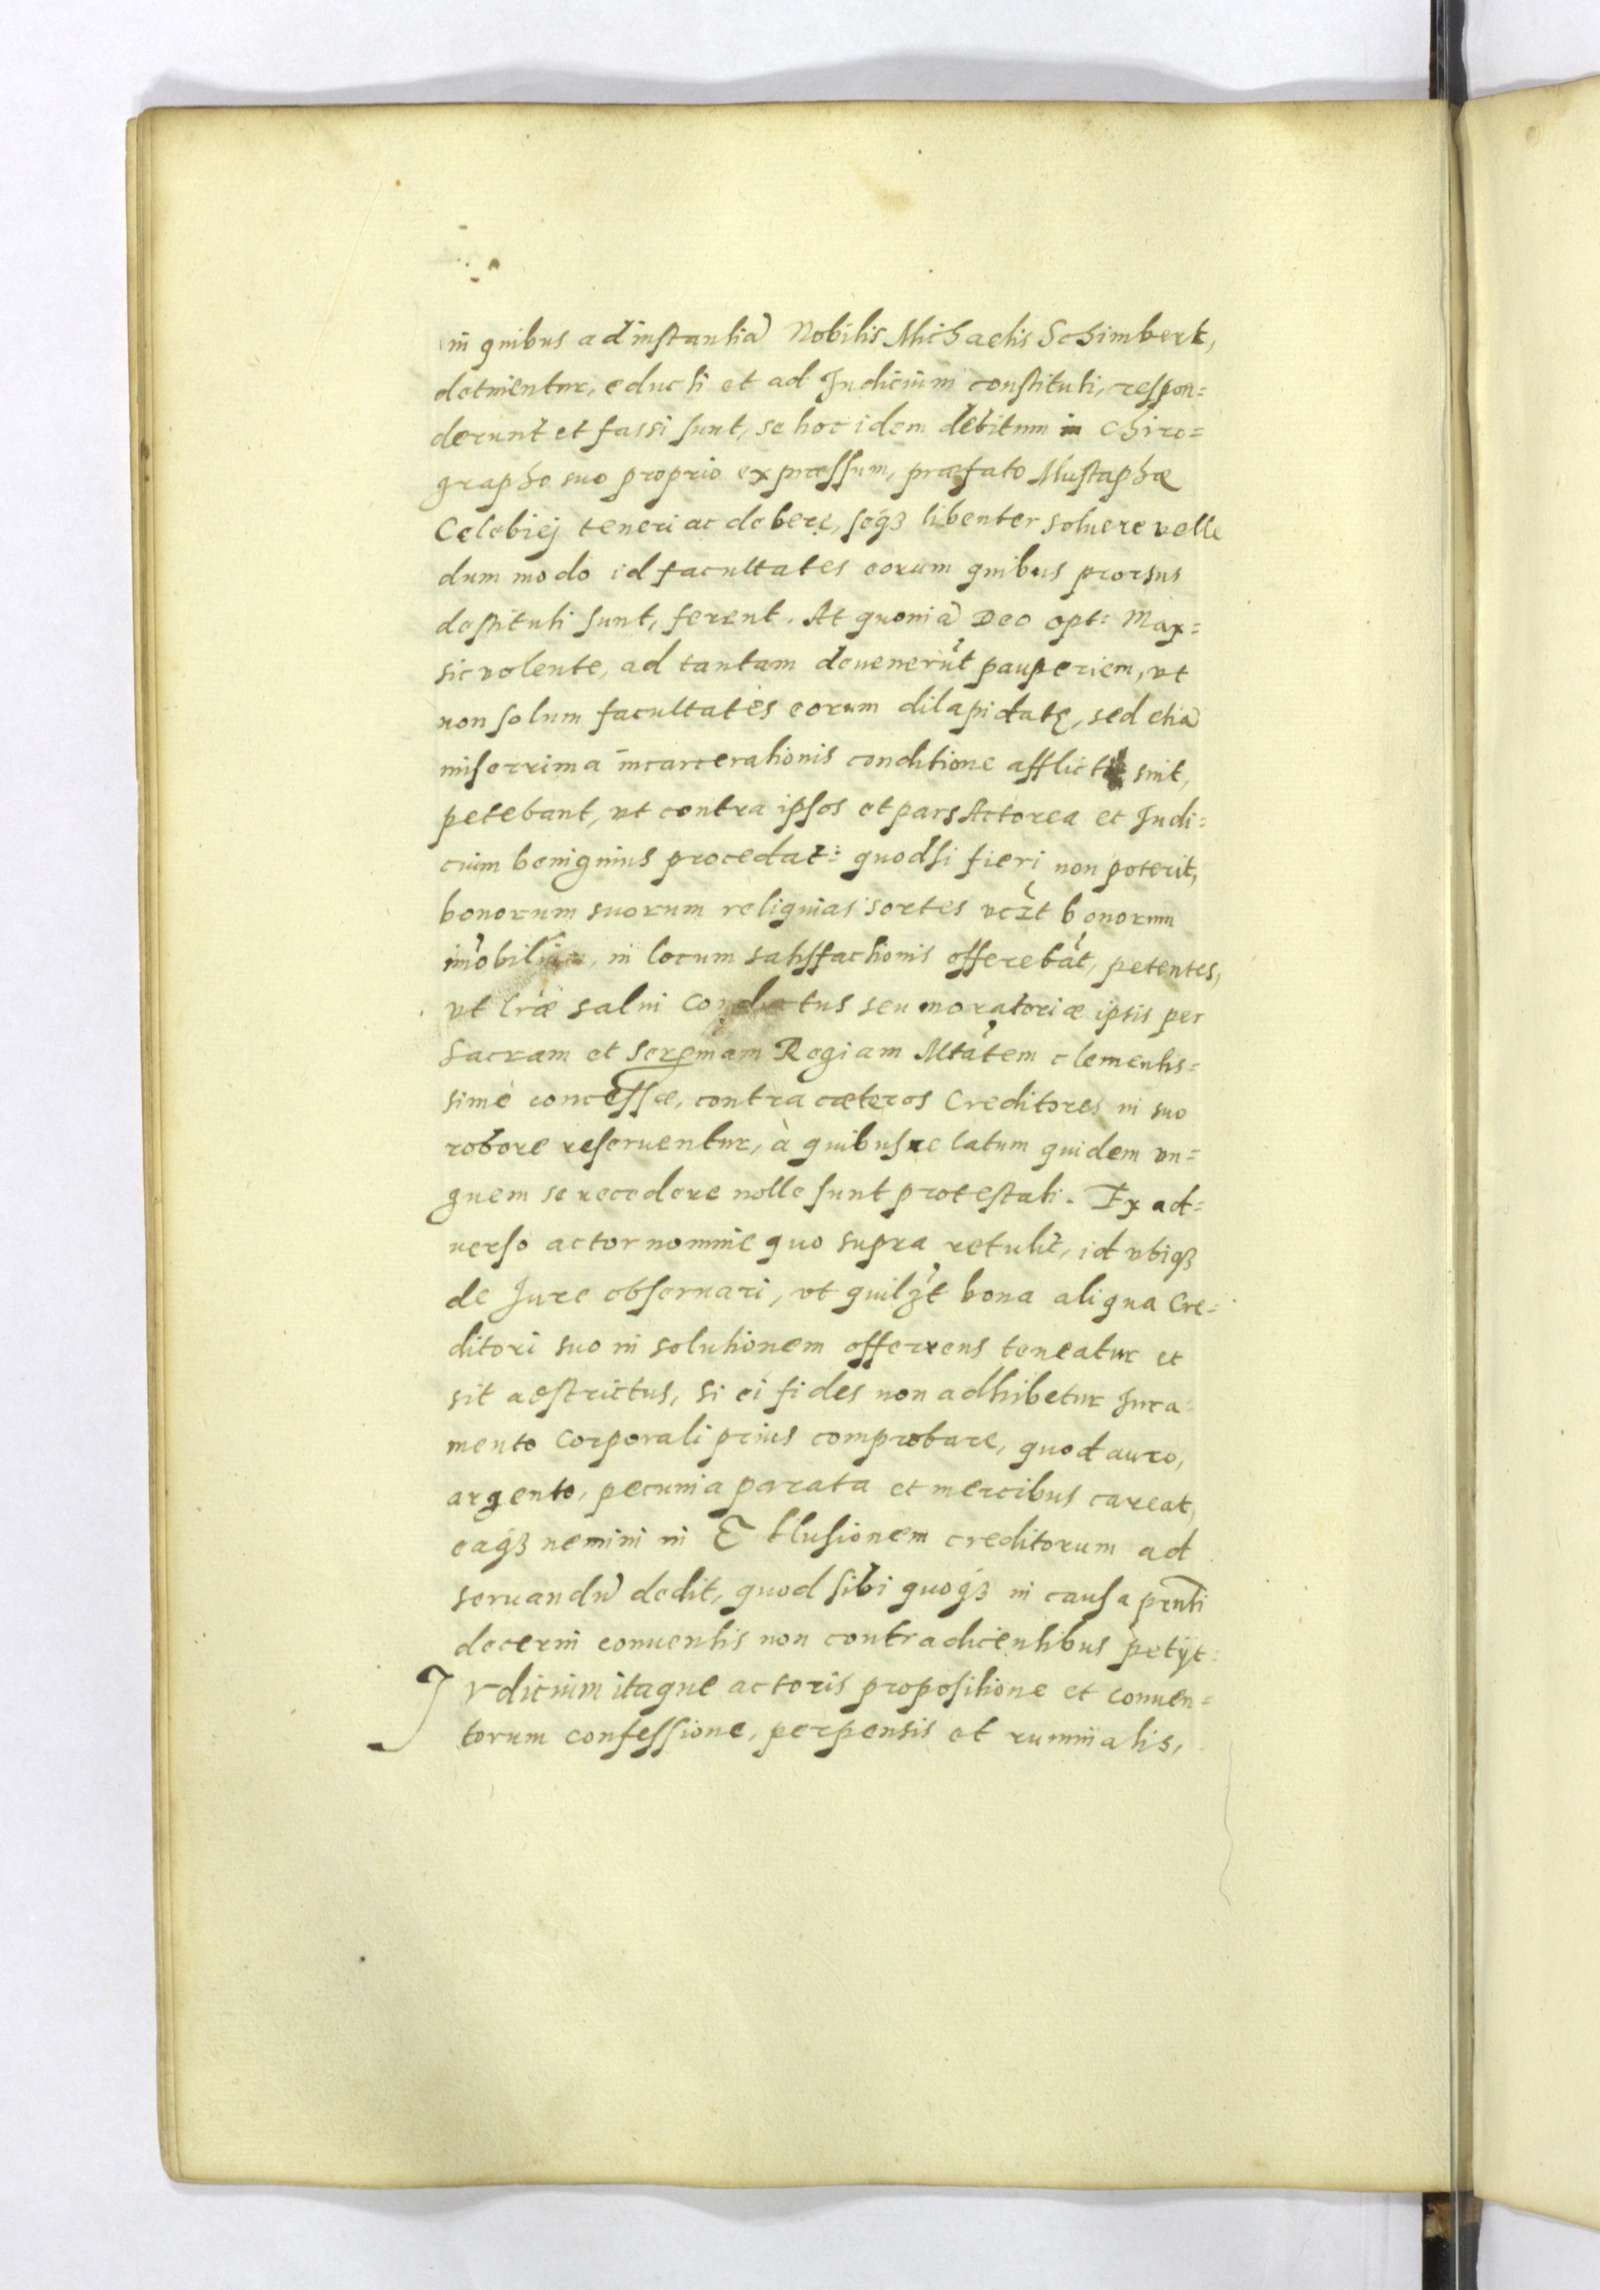 in quibus ad instantiã Nobilis Michaelis Schimberk,
detinentur, educti et ad Judicium constituti, respon=
derunt et fassi sunt, se hoc idem debitum in Chiro=
grapho suo proprio expræssum, præfato Mustaphæ
Celebiej teneri ac debere, seqʒ libenter soluere velle
dum modo id facultates eorum quibus prorsus
destituti sunt, ferent. At quoniã Deo opt: Max=
sic volente, ad tantam deuenerũt pauperiem, vt
non solum facultates eorum dilapidatę, sed etiã
miserrima incarcerationis conditione afflicti sint,
petebant, vt contra ipsos et pars Actorea et Judi=
cium benignius procedat: quodsi fieri non poterit,
bonorum suorum reliquias sortes vcꝫt bonorum
im̃obilium, in locum satisfactionis offerebãt, petentes,
vt lr̃æ salui Conductus seu moratoriæ ipsis per
Sacram et Serenmam Regiam Mtãtem clementis=
simè concessæ, contra cæteros Creditores in suo
robore reseruentur, à quibus ne latum quidem vn=
guem se recedere nolle sunt protestati. Ex ad=
uerso actor nomine quo supra retulit, id vbiqʒ
de Jure obseruari, vt quilꝫt bona aliqua Cre=
ditori suo in solutionem offerrens teneatur et
sit aestrictus, si ei fides non adhibetur Jura=
mento Corporali prius comprobare, quod auro,
argento, pecunia parata et mercibus careat,
eaqʒ nemini in Ellusionem creditorum ad
seruandũ dedit, quod sibi quoqʒ in causa prñti
decerni conuentis non contradicentibus petijt:
Judicium itaque actoris propositione et conuen=
torum confessione, perpensis et ruminatis,